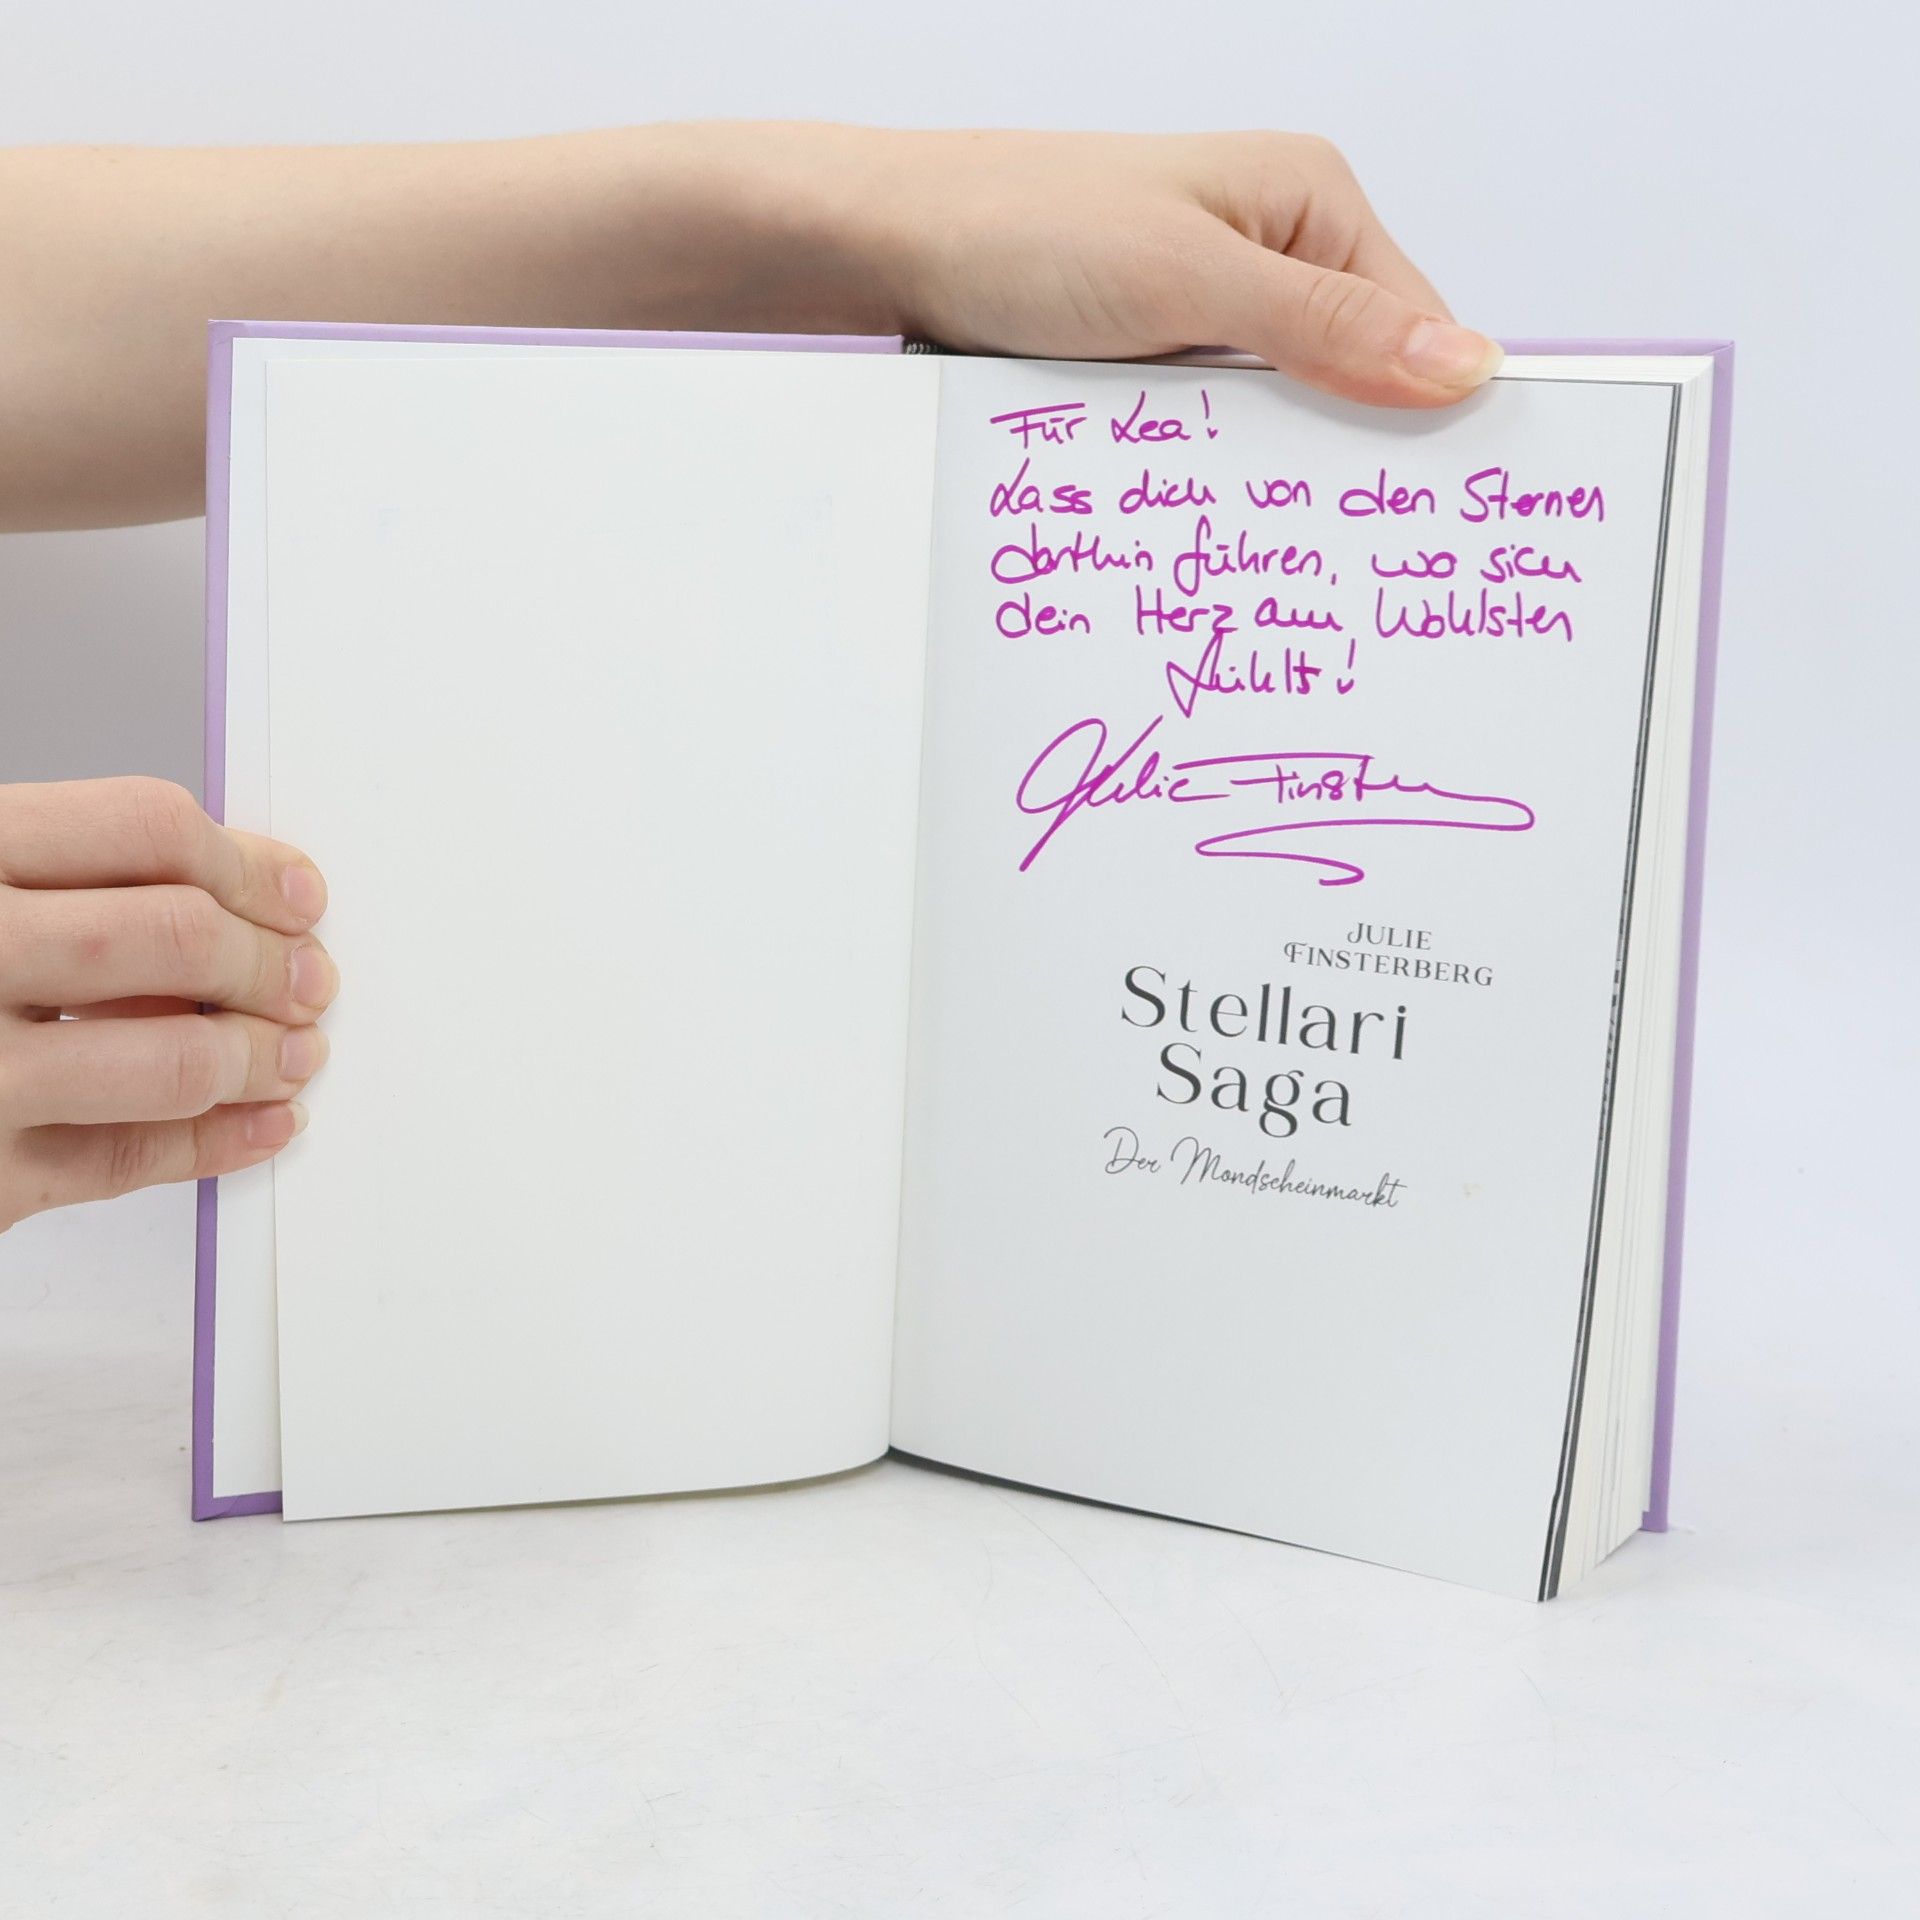 Für Lea!
Lass dich von den Sternen
dorthin führen, wo sich
dein Herz am Wohlsten
fühlt!
Julie Finster
JULIE
FINSTERBERG
Stellari
Saga
Der Mondscheinmarkt